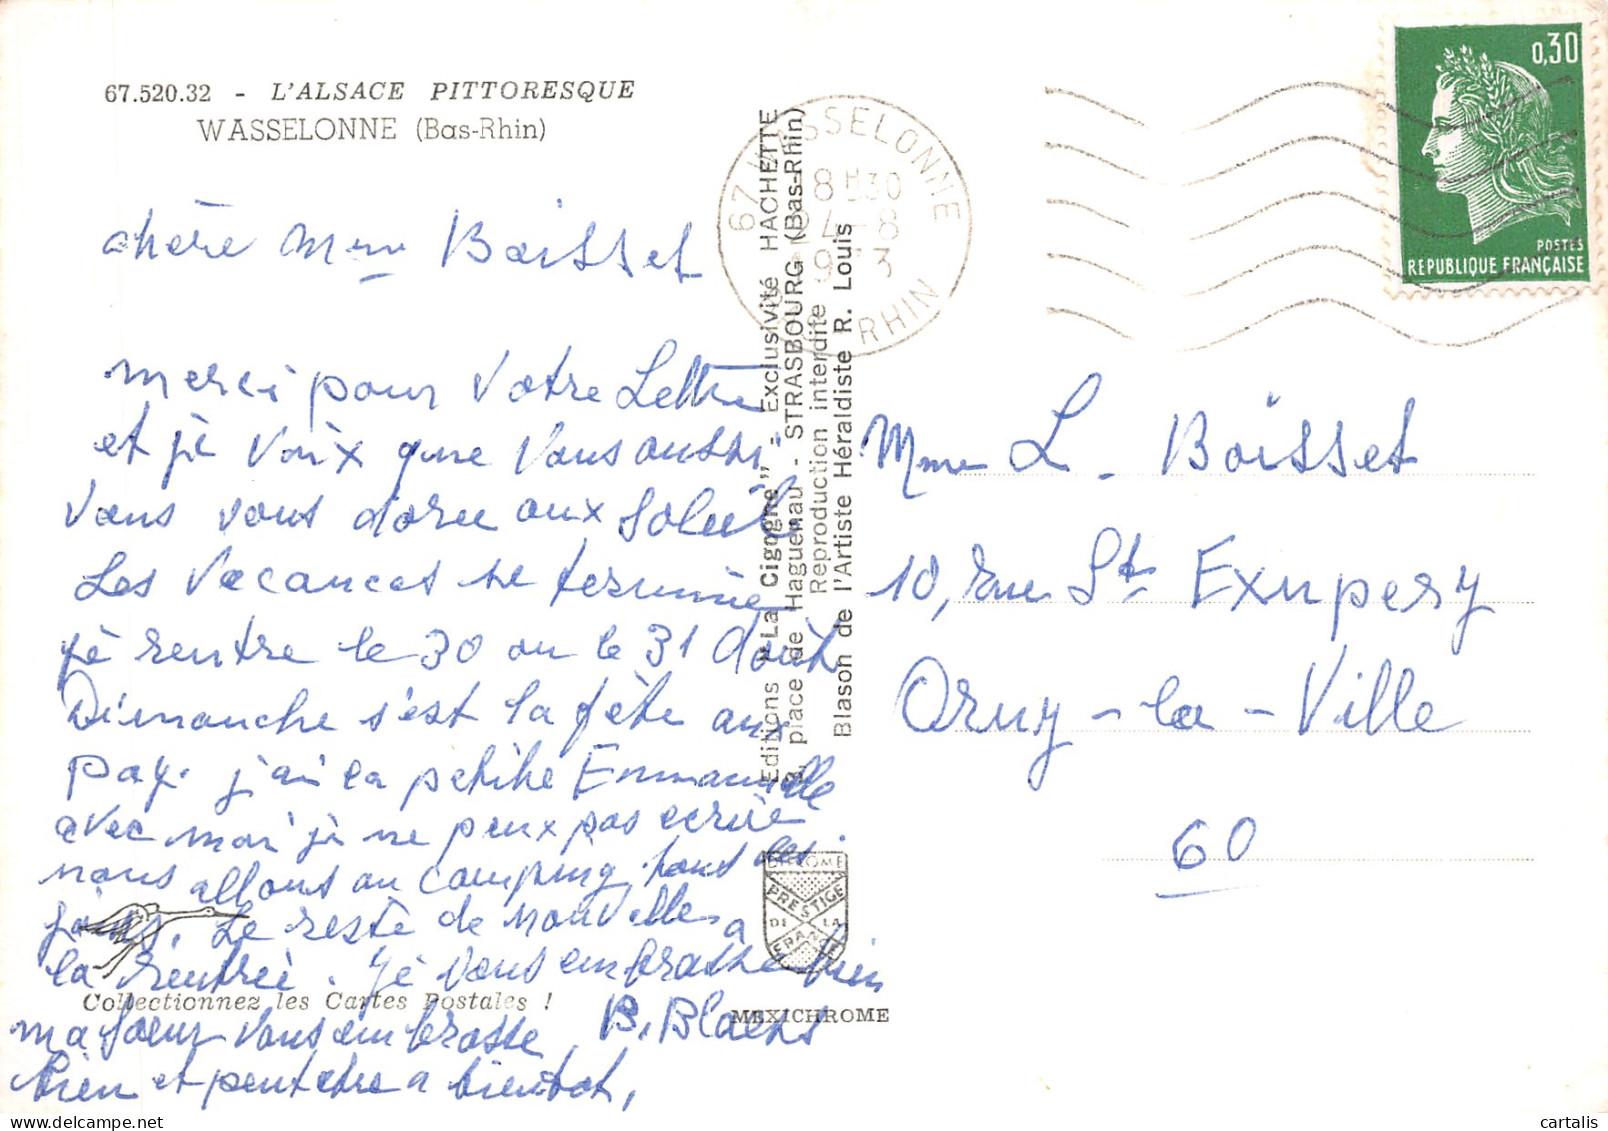 67.520.32 - L'ALSACE PITTORESQUE
WASSELONNE (Bas-Rhin)
chère Mme Boisset
merci pour Votre Lettre
et jè Voix que Vous aussi
Vous vous dorer aux Soleil
Les Vacances se termine
jè rentre le 30 ou le 31 Août
Dimanche s'est la fète aux
pay. j'ai la petite Emmanuelle
avec moi jè ne peux pas ecrire
nous allons au camping tous les
jours. Le reste de nouvelles a
la rentrée. Jè vous embrasse bien
Collectionnez les Cartes Postales !
B. Blaens
ma soeur vous embrasse
bien et peut etre a bientot,
Editions "La Cigogne" - Exclusivité HACHETTE
place de Haguenau - STRASBOURG (Bas-Rhin)
Reproduction interdite
Blason de l'Artiste Héraldiste R. Louis
DIPLOME
PRESTIGE
DE LA
FRANCE
MEXICHROME
67 WASSELONNE
8H30
4-8
1973
RHIN
0,30
POSTES
REPUBLIQUE FRANÇAISE
Mme L. Boisset
10, rue St Exupery
Orry-la-Ville
60
cartalis